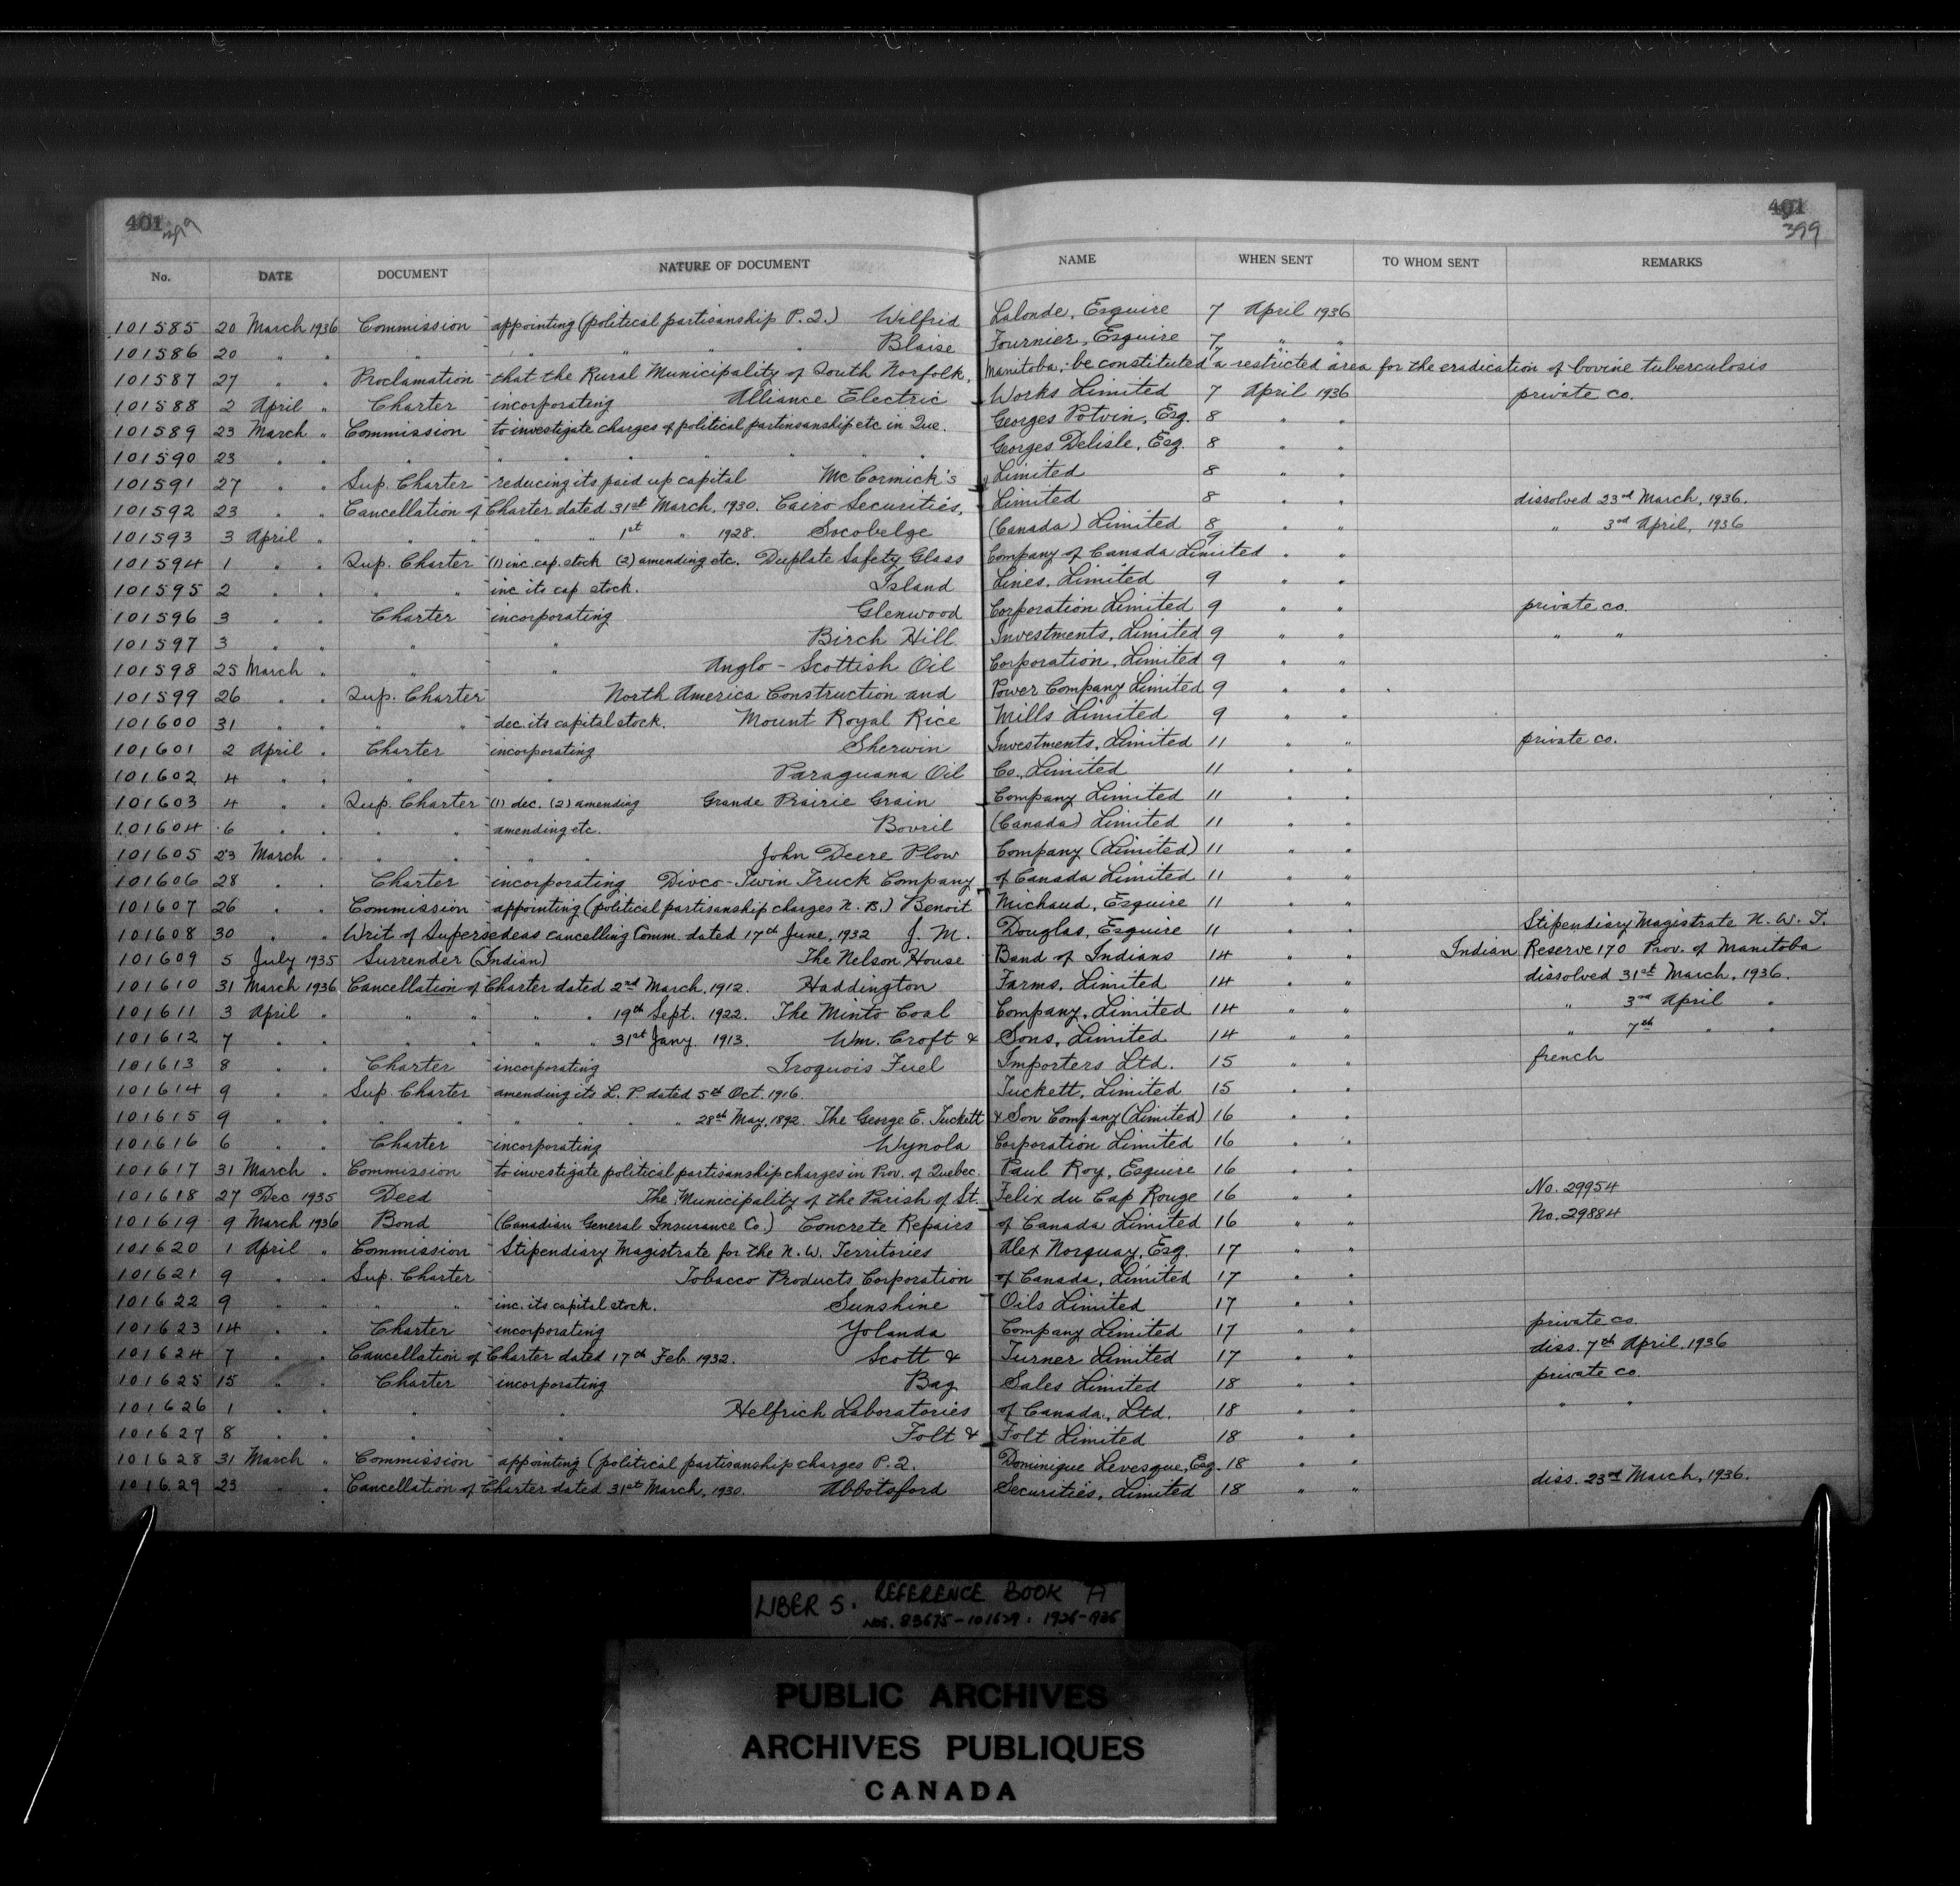 401
399
401
399
No. DATE DOCUMENT NATURE OF DOCUMENT NAME WHEN SENT TO WHOM SENT REMARKS
101585 20 March 1936 Commission appointing (political partisanship P.Q.) Wilfrid Lalonde, Esquire 7 April 1936
101586 20 " " " " " " " Blaise Fournier, Esquire 7 " "
101587 27 " " Proclamation that the Rural Municipality of South Norfolk, Manitoba, be constituted a restricted area for the eradication of bovine tuberculosis 7 " "
101588 2 April " Charter incorporating Alliance Electric Works Limited 7 April 1936 private co.
101589 23 March " Commission to investigate charges of political partinsanship etc in Que. Georges Potvin, Esq. 8 " "
101590 23 " " " " " " " " " Georges Delisle, Esq. 8 " "
101591 27 " " Sup. Charter reducing its paid up capital McCormick's Limited 8 " "
101592 23 " " Cancellation of Charter dated 31st March, 1930. Cairo Securities, Limited 8 " " dissolved 23rd March, 1936.
101593 3 April " " " " " 1st " 1928. Socobelge (Canada) Limited 8 " " " 3rd April, 1936
101594 1 " " Sup. Charter (1) inc. cap. stock (2) amending etc. Duplate Safety Glass Company of Canada Limited 9 " "
101595 2 " " " " inc. its cap stock. Island Lines, Limited 9 " "
101596 3 " " Charter incorporating Glenwood Corporation Limited 9 " " private co.
101597 3 " " " " Birch Hill Investments, Limited 9 " " " "
101598 25 March " " " Anglo-Scottish Oil Corporation, Limited 9 " "
101599 26 " " Sup. Charter North America Construction and Power Company Limited 9 " "
101600 31 " " " " dec. its capital stock. Mount Royal Rice Mills Limited 9 " "
101601 2 April " Charter incorporating Sherwin Investments, Limited 11 " " private co.
101602 4 " " " " Paraguana Oil Co., Limited 11 " "
101603 4 " " Sup. Charter (1) dec. (2) amending Grande Prairie Grain Company Limited 11 " "
101604 6 " " " " amending etc. Bovril (Canada) Limited 11 " "
101605 23 March " " " " " John Deere Plow Company (Limited) 11 " "
101606 28 " " Charter incorporating Divco-Twin Truck Company of Canada Limited 11 " "
101607 26 " " Commission appointing (political partisanship charges N.B.) Benoit Michaud, Esquire 11 " "
101608 30 " " Writ of Supersedeas cancelling Comm. dated 17th June, 1932 J. M. Douglas, Esquire 11 " " Stipendiary Magistrate N.W.T.
101609 5 July 1935 Surrender (Indian) The Nelson House Band of Indians 14 " " Indian Reserve 170 Prov. of Manitoba
101610 31 March 1936 Cancellation of Charter dated 2nd March, 1912. Haddington Farms, Limited 14 " " dissolved 31st March, 1936.
101611 3 April " " " " " 19th Sept. 1922. The Minto Coal Company, Limited 14 " " " 3rd April "
101612 7 " " " " " " 31st Jany. 1913. Wm. Croft & Sons, Limited 14 " " " 7th " "
101613 8 " " Charter incorporating Iroquois Fuel Importers Ltd. 15 " " french
101614 9 " " Sup. Charter amending its L.P. dated 5th Oct. 1916. Tuckett, Limited 15 " "
101615 9 " " " " " " " " 28th May, 1892. The George E. Tuckett & Son Company (Limited) 16 " "
101616 6 " " Charter incorporating Wynola Corporation Limited 16 " "
101617 31 March " Commission to investigate political partisanship charges in Prov. of Quebec. Paul Roy, Esquire 16 " "
101618 27 Dec 1935 Deed The Municipality of the Parish of St. Felix du Cap Rouge 16 " " No. 29954
101619 9 March 1936 Bond (Canadian General Insurance Co.) Concrete Repairs of Canada Limited 16 " " No. 29884
101620 1 April " Commission Stipendiary Magistrate for the N.W. Territories Alex Norquay, Esq. 17 " "
101621 9 " " Sup. Charter Tobacco Products Corporation of Canada, Limited 17 " "
101622 9 " " " " inc. its capital stock. Sunshine Oils Limited 17 " "
101623 14 " " Charter incorporating Yolanda Company Limited 17 " " private co.
101624 7 " " Cancellation of Charter dated 17th Feb. 1932. Scott & Turner Limited 17 " " diss. 7th April, 1936
101625 15 " " Charter incorporating Bag Sales Limited 18 " " private co.
101626 1 " " " " Helfrich Laboratories of Canada, Ltd. 18 " " " "
101627 8 " " " " Folt & Folt Limited 18 " "
101628 31 March " Commission appointing (political partisanship charges P.Q. Dominique Levesque, Esq. 18 " "
101629 23 " " Cancellation of Charter dated 31st March, 1930. Abbotsford Securities, Limited 18 " " diss. 23rd March, 1936.
LIBER 5. REFERENCE BOOK A
NOS. 83675-101629. 1926-1936
PUBLIC ARCHIVES
ARCHIVES PUBLIQUES
CANADA